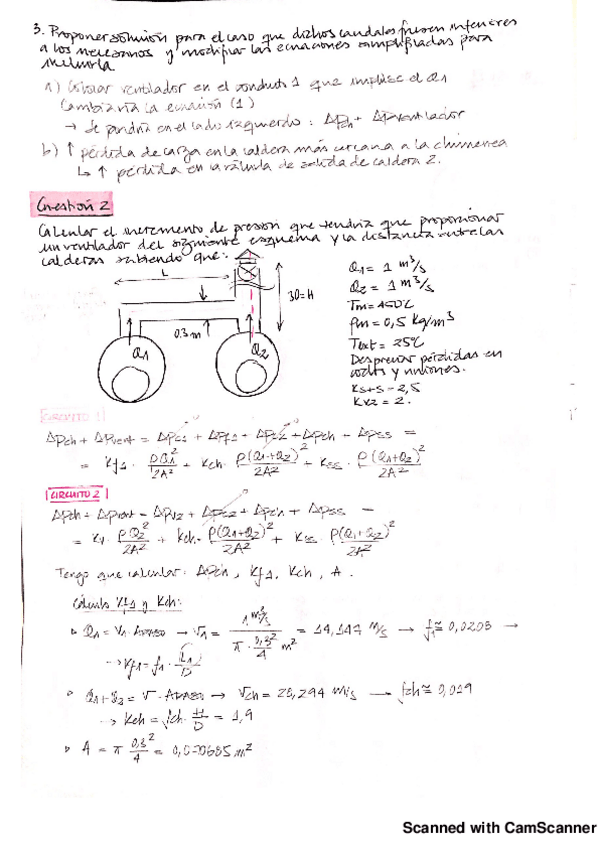 3. Proponer solución para el caso que dichos caudales fuesen inferiores
a los necesarios y modificar las ecuaciones simplificadas para
incluirla
a) Colocar ventilador en el conducto 1 que impulse el Q1
Cambiaría la ecuación (1)
→ Se pondría en el lado izquierdo: ΔPch + ΔPventilador
b) ↑ pérdida de carga en la caldera más cercana a la chimenea
↳ ↑ pérdida en la válvula de salida de caldera 2.
Cuestión 2
Calcular el incremento de presión que tendría que proporcionar
un ventilador del siguiente esquema y la distancia entre las
calderas sabiendo que:
L
30=H
0.3m
Q1
Q2
Q1 = 1 m³/s
Q2 = 1 m³/s
Tm = 450ºC
ρm = 0,5 kg/m³
Text = 25ºC
Despreciar pérdidas en
codos y uniones.
Ks+s = 2,5
Kv2 = 2.
CIRCUITO 1
ΔPch + ΔPvent = ΔPc1 + ΔPf1 + ΔPc2 + ΔPch + ΔPss =
= Kf1 · ρQ1²/2A² + Kch · ρ(Q1+Q2)²/2A² + Kss · ρ(Q1+Q2)²/2A²
CIRCUITO 2
ΔPch + ΔPvent = ΔPv2 + ΔPc2 + ΔPch + ΔPss =
= Kv · ρQ2²/2A² + Kch · ρ(Q1+Q2)²/2A² + Kss · ρ(Q1+Q2)²/2A²
Tengo que calcular: ΔPch, Kf1, Kch, A.
Cálculo Kf1 y Kch:
▸ Q1 = V1 · → V1 = 1 m³/s / π · 0,3²/4 m² = 14,147 m/s → f1 ≅ 0,0203 →
→ Kf1 = f1 · L1/D
▸ Q1+Q2 = V · → Vch = 28,294 m/s → fch ≅ 0,019
→ Kch = fch · H/D = 1,9
▸ A = π 0,3²/4 = m²
Scanned with CamScanner